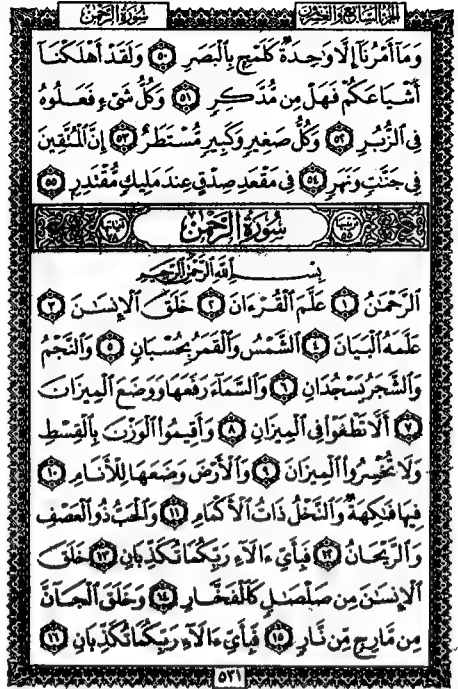 الجزء السابع والعشرون
سُورَةُ الرَّحْمٰن
وَمَآ أَمْرُنَآ إِلَّا وَٰحِدَةٌ كَلَمْحٍۭ بِٱلْبَصَرِ ۝٥٠ وَلَقَدْ أَهْلَكْنَآ
أَشْيَاعَكُمْ فَهَلْ مِن مُّدَّكِرٍ ۝٥١ وَكُلُّ شَىْءٍ فَعَلُوهُ
فِى ٱلزُّبُرِ ۝٥٢ وَكُلُّ صَغِيرٍ وَكَبِيرٍ مُّسْتَطَرٌ ۝٥٣ إِنَّ ٱلْمُتَّقِينَ
فِى جَنَّٰتٍ وَنَهَرٍ ۝٥٤ فِى مَقْعَدِ صِدْقٍ عِندَ مَلِيكٍ مُّقْتَدِرٍۭ ۝٥٥
ترتيبها ٥٥ سُورَةُ الرَّحْمٰن آياتها ٧٨
بِسْمِ ٱللَّهِ ٱلرَّحْمَٰنِ ٱلرَّحِيمِ
ٱلرَّحْمَٰنُ ۝١ عَلَّمَ ٱلْقُرْءَانَ ۝٢ خَلَقَ ٱلْإِنسَٰنَ ۝٣
عَلَّمَهُ ٱلْبَيَانَ ۝٤ ٱلشَّمْسُ وَٱلْقَمَرُ بِحُسْبَانٍ ۝٥ وَٱلنَّجْمُ
وَٱلشَّجَرُ يَسْجُدَانِ ۝٦ وَٱلسَّمَآءَ رَفَعَهَا وَوَضَعَ ٱلْمِيزَانَ
۝٧ أَلَّا تَطْغَوْا۟ فِى ٱلْمِيزَانِ ۝٨ وَأَقِيمُوا۟ ٱلْوَزْنَ بِٱلْقِسْطِ
وَلَا تُخْسِرُوا۟ ٱلْمِيزَانَ ۝٩ وَٱلْأَرْضَ وَضَعَهَا لِلْأَنَامِ ۝١٠
فِيهَا فَٰكِهَةٌ وَٱلنَّخْلُ ذَاتُ ٱلْأَكْمَامِ ۝١١ وَٱلْحَبُّ ذُو ٱلْعَصْفِ
وَٱلرَّيْحَانُ ۝١٢ فَبِأَىِّ ءَالَآءِ رَبِّكُمَا تُكَذِّبَانِ ۝١٣ خَلَقَ
ٱلْإِنسَٰنَ مِن صَلْصَٰلٍ كَٱلْفَخَّارِ ۝١٤ وَخَلَقَ ٱلْجَآنَّ
مِن مَّارِجٍ مِّن نَّارٍ ۝١٥ فَبِأَىِّ ءَالَآءِ رَبِّكُمَا تُكَذِّبَانِ ۝١٦
٥٣١